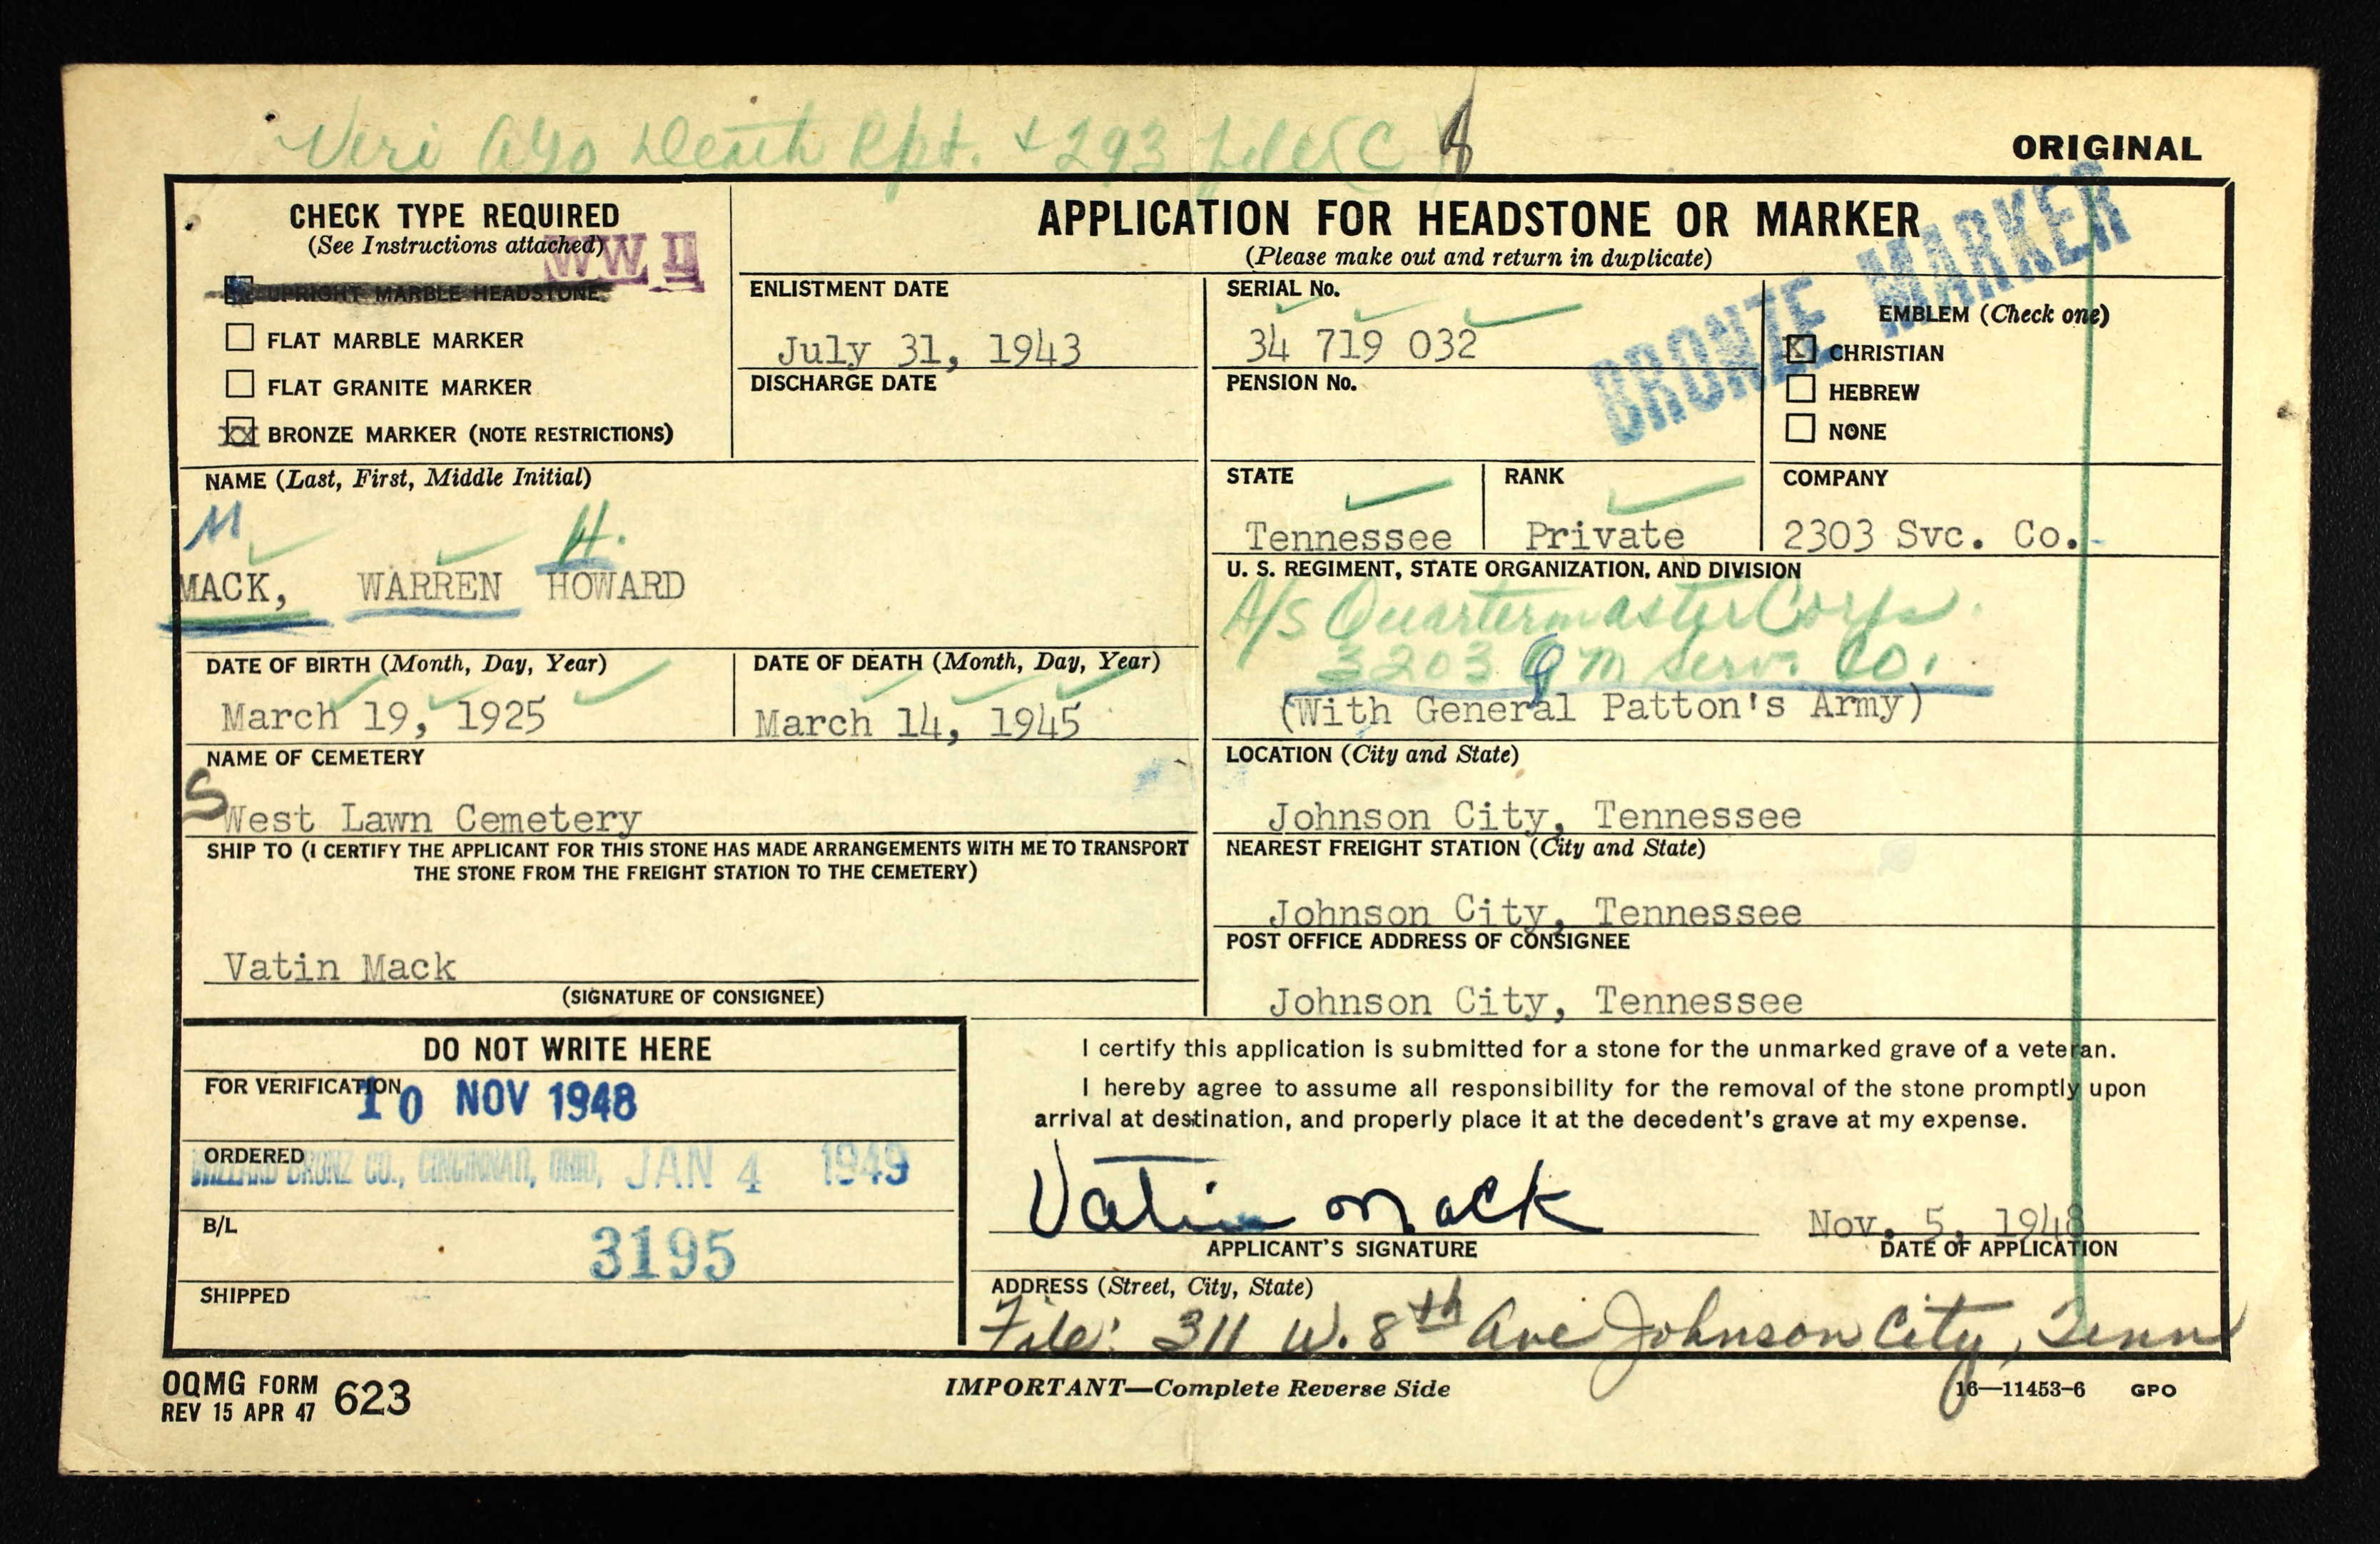 Veri AGO Death Rpt. + 293 file (C
ORIGINAL
CHECK TYPE REQUIRED
(See Instructions attached)
WW II
UPRIGHT MARBLE HEADSTONE
FLAT MARBLE MARKER
FLAT GRANITE MARKER
XX BRONZE MARKER (NOTE RESTRICTIONS)
APPLICATION FOR HEADSTONE OR MARKER
(Please make out and return in duplicate)
BRONZE MARKER
ENLISTMENT DATE
July 31, 1943
DISCHARGE DATE
SERIAL No.
34 719 032
PENSION No.
EMBLEM (Check one)
X CHRISTIAN
HEBREW
NONE
NAME (Last, First, Middle Initial)
M H.
MACK, WARREN HOWARD
STATE
Tennessee
RANK
Private
COMPANY
2303 Svc. Co.
U. S. REGIMENT, STATE ORGANIZATION, AND DIVISION
A/S Quartermaster Corps.
3203 QM Serv. Co.
(With General Patton's Army)
DATE OF BIRTH (Month, Day, Year)
March 19, 1925
DATE OF DEATH (Month, Day, Year)
March 14, 1945
NAME OF CEMETERY
S
West Lawn Cemetery
LOCATION (City and State)
Johnson City, Tennessee
SHIP TO (I CERTIFY THE APPLICANT FOR THIS STONE HAS MADE ARRANGEMENTS WITH ME TO TRANSPORT
THE STONE FROM THE FREIGHT STATION TO THE CEMETERY)
Vatin Mack
(SIGNATURE OF CONSIGNEE)
NEAREST FREIGHT STATION (City and State)
Johnson City, Tennessee
POST OFFICE ADDRESS OF CONSIGNEE
Johnson City, Tennessee
DO NOT WRITE HERE
FOR VERIFICATION
10 NOV 1948
ORDERED
BRONZ CO., CINCINNATI, OHIO, JAN 4 1949
B/L
3195
SHIPPED
I certify this application is submitted for a stone for the unmarked grave of a veteran.
I hereby agree to assume all responsibility for the removal of the stone promptly upon
arrival at destination, and properly place it at the decedent's grave at my expense.
Vatin Mack
APPLICANT'S SIGNATURE
Nov. 5, 1948
DATE OF APPLICATION
ADDRESS (Street, City, State)
File: 311 W. 8th Ave Johnson City, Tenn
OQMG FORM 623
REV 15 APR 47
IMPORTANT—Complete Reverse Side
16—11453-6 GPO